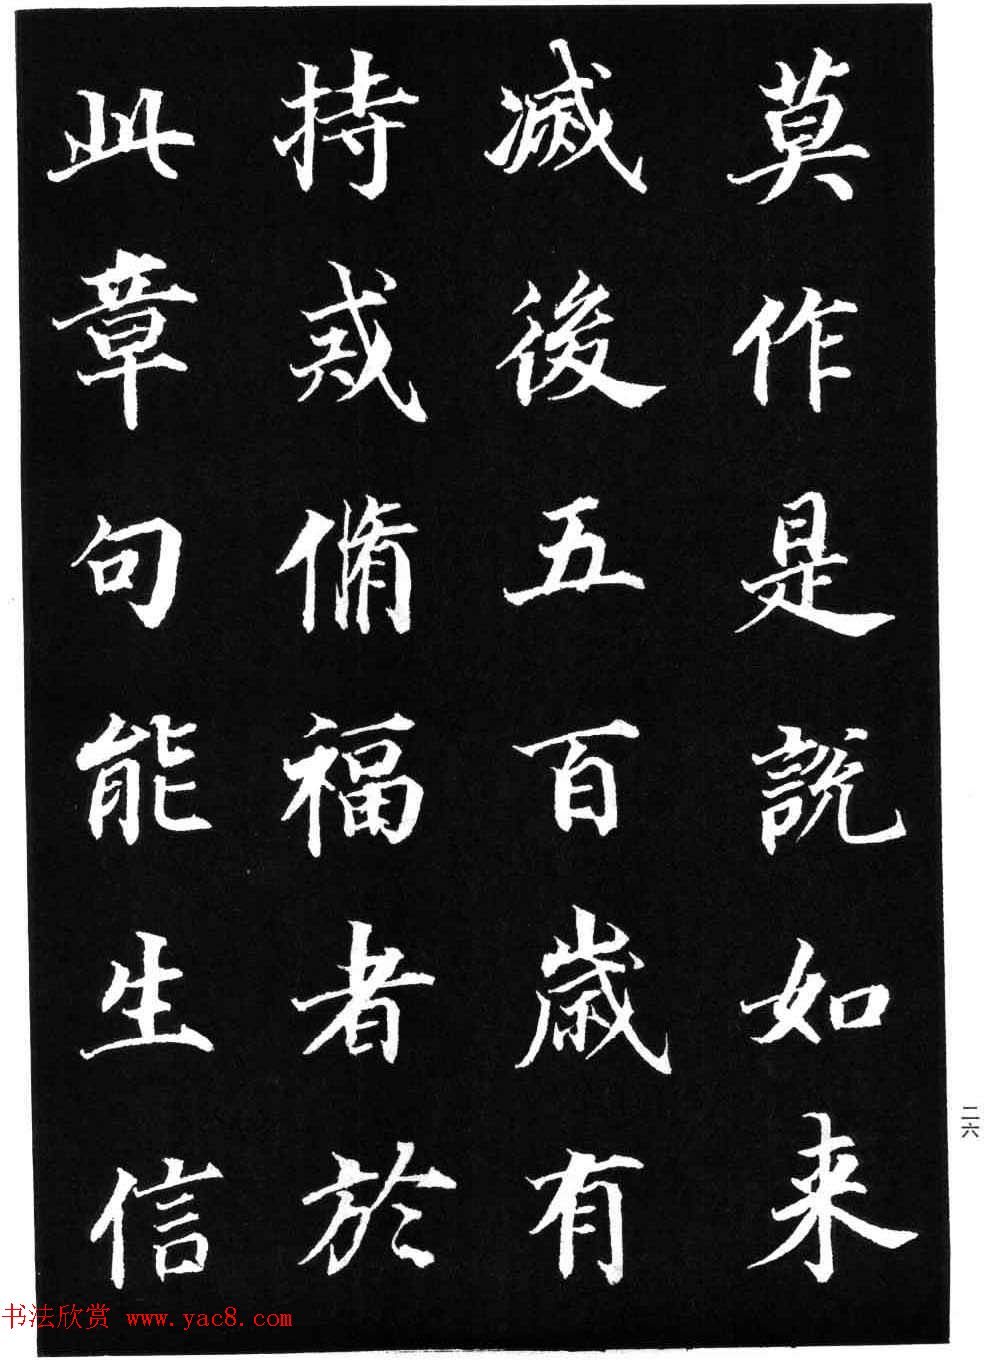 莫作是說如来
滅後五百歲有
持戒脩福者於
此章句能生信
二六
书法欣赏 www.yac8.com